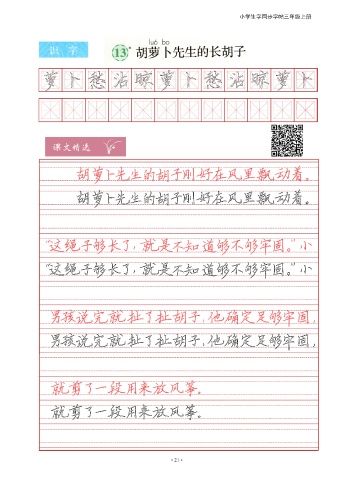 小学生字同步字帖三年级上册
识 字
luó bo
13* 胡萝卜先生的长胡子
萝卜愁沾晾萝卜愁沾晾萝卜
课文精选
胡萝卜先生的胡子刚好在风里飘动着。
胡萝卜先生的胡子刚好在风里飘动着。
“这绳子够长了，就是不知道够不够牢固。”小
“这绳子够长了，就是不知道够不够牢固。”小
男孩说完就扯了扯胡子，他确定足够牢固，
男孩说完就扯了扯胡子，他确定足够牢固，
就剪了一段用来放风筝。
就剪了一段用来放风筝。